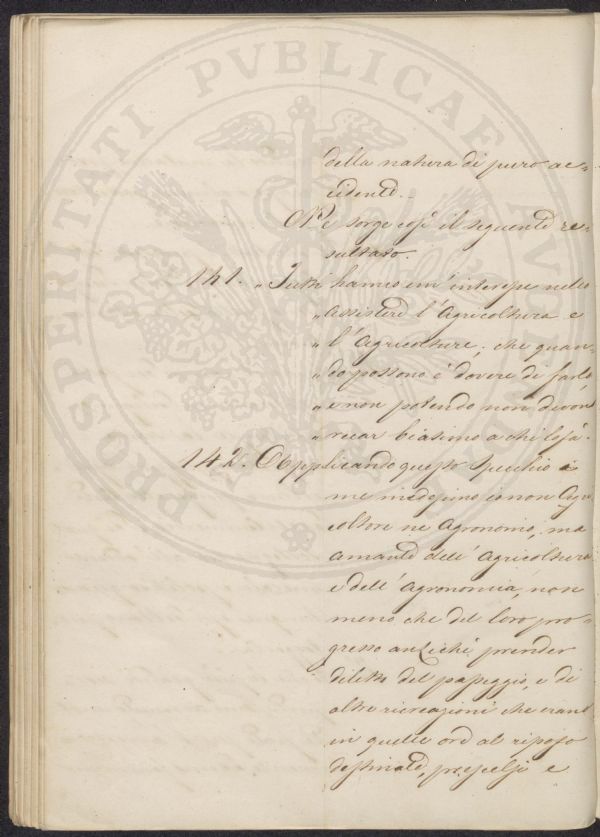 PROSPERITATI PVBLICAE AVGENDAE
della natura di puro ac-
cidente.
Ne sorge così il seguente re-
sultato.
141. „ Tutti hanno un' interesse nello
„ assistere l' Agricoltura e
„ l' Agricoltore; che quan-
„ do possono è dovere di farlo
„ e non potendo non devono
„ recar biasimo a chi lo fà.
142. Applicando questo specchio a
me medesimo io non Agri
coltore ne Agronomo, ma
amante dell' Agricoltura
e dell' Agronomia, non
meno che del loro pro-
gresso anziché prender
diletto del passeggio, e di
altre ricreazioni che erano
in quelle ore al riposo
destinate, prescelsi e